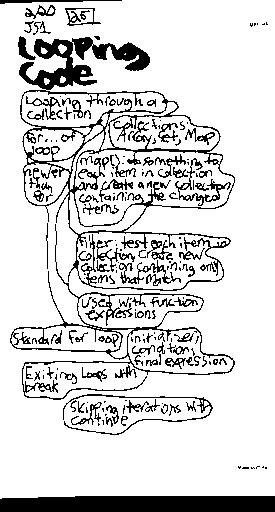 2,20 25
JS1
Looping
Code
Looping through a
collection
Collections:
Array, Set, Map
for...of
loop
newer
than
for
map(): do something to
each item in collection
and create a new collection
containing the changed
items
filter: test each item in
collection, create new
collection containing only
items that match
Used with function
expressions
Standard for loop
initializer,
condition,
final expression
Exiting Loops with
break
Skipping iterations with
continue